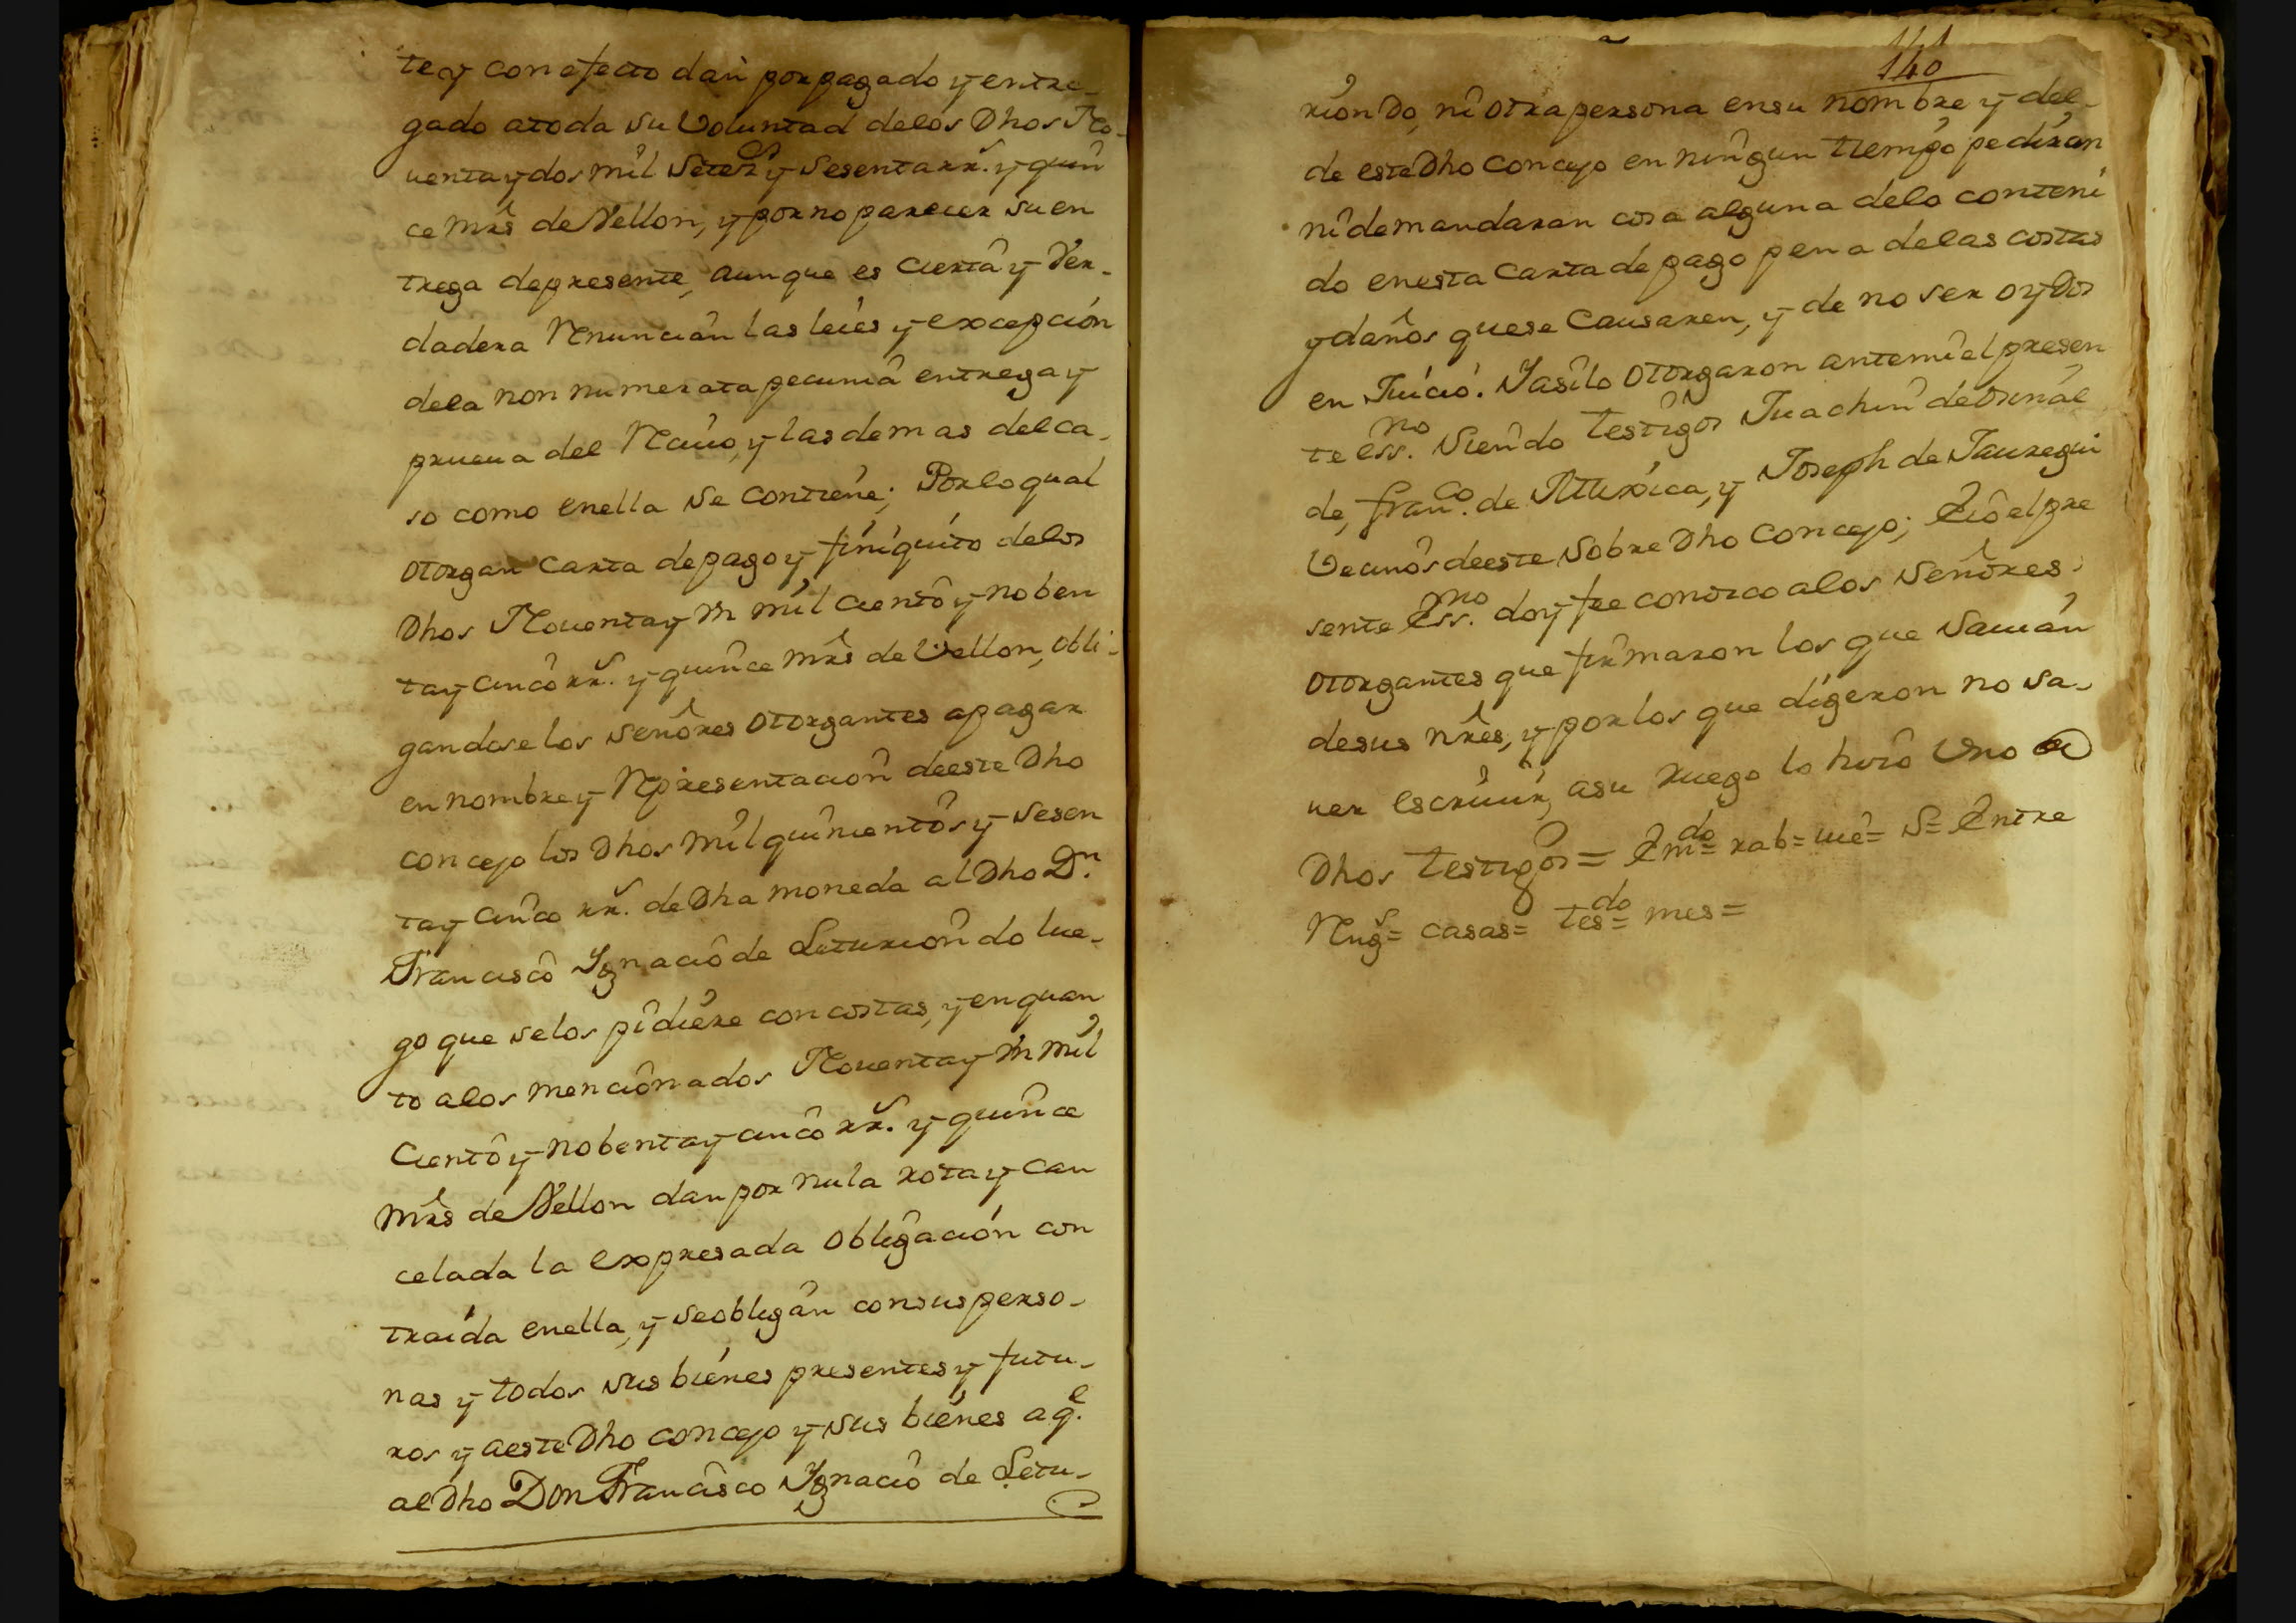 te y con efecto dan por pagado y entre-
gado a toda su Voluntad delos Dhos No-
venta y dos mil Setez.s y Sesenta rr.s y quin
ce mrs de Vellon, y por no parecer su en
trega depresente, aunque es cierta y Ver-
dadera Renuncian las leies y excepcion
dela non numerata pecunia entrega y
prueua del Reciuo, y las demas del ca-
so como enella se contiene; Por lo qual
otorgan carta de pago y finiquito delos
Dhos Noventa y Vn mil ciento y noben
ta y cinco rr.s y quince mrs de Vellon, obli-
gandose los señores otorgantes a pagar
en nombre y Representacion deeste Dho
concejo los Dhos mil quinientos y sesen
ta y cinco rr.s de Dha moneda al Dho D.n
Francisco Ygnacio de Leturiondo lue-
go que selos pidiere con costas, y en quan
to alos mencionados Noventa y Vn mil
Ciento y nobenta y cinco rr.s y quince
mrs de Vellon dan por nula rota y can
celada la expresada obligacion con
traida enella, y se obligan con sus perso-
nas y todos sus bienes presentes y futu-
ros y aeste Dho concejo y sus bienes a q.e
al Dho Don Francisco Ygnacio de Letu-
141
140
riondo, ni otra persona en su nombre y del-
de este Dho concejo en ningun tiempo pediran
ni demandaran cosa alguna delo conteni
do enesta Carta de pago pena delas costas
y daños que se Causaren, y de no ser oydos
en Juicio. Y asi lo otorgaron ante mi el presen
te ess.no Siendo testigos Juachin de
de, fran.co de Muxica, y Joseph de Jauregui
Vecinos deeste Sobre Dho Concejo; E io el pre
sente Ess.no doy fee conozco alos Señores
otorgantes que firmaron los que Sauian
de sus nres, y por los que digeron no sa-
uer escriuir, a su ruego lo hizo Uno de
Dhos testigos = Em.do = rab = ue = S = Entre
Reng.s = casas = tes.do = mes =